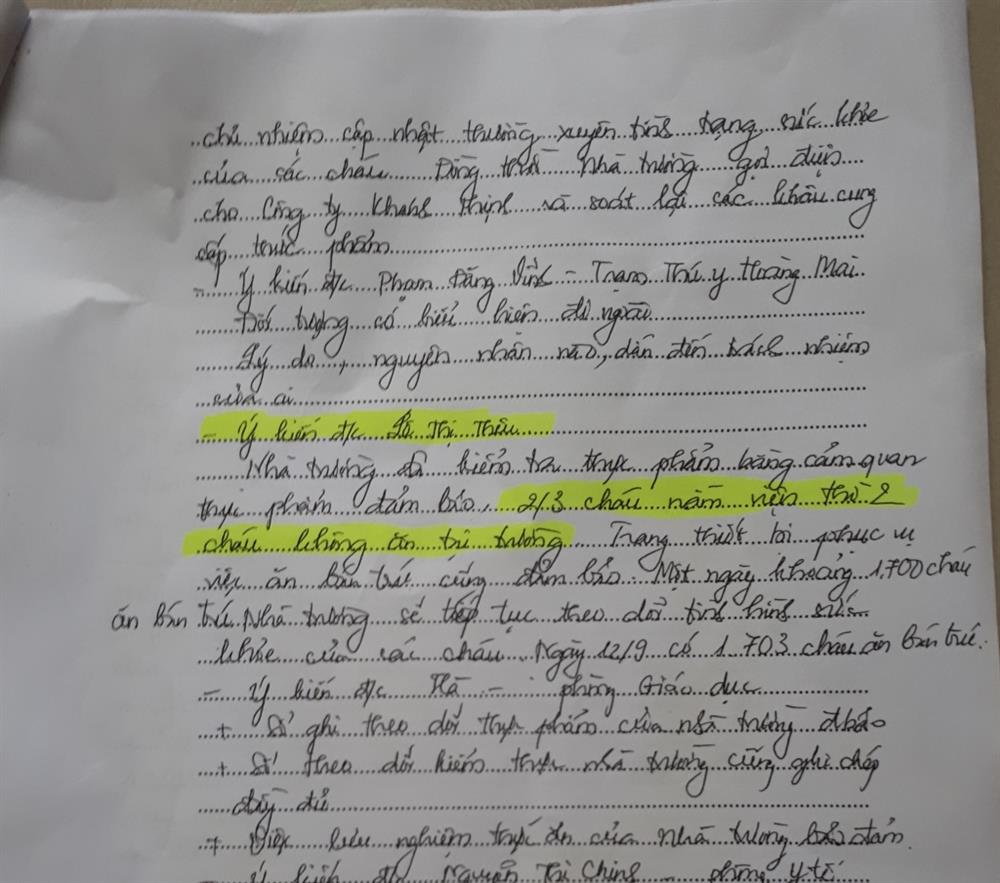 chủ nhiệm cập nhật thường xuyên tình trạng sức khỏe
của các cháu. Đồng thời nhà trường gọi điện
cho Công ty Khánh Thịnh rà soát lại các khâu cung
cấp thực phẩm
- Ý kiến đ/c Phạm Đăng Vinh - Trạm Thú y Hoàng Mai
Đối tượng có biểu hiện đi ngoài
Lý do, nguyên nhân nào, dẫn đến trách nhiệm
của ai
- Ý kiến đ/c Thị
Nhà trường đã kiểm tra thực phẩm bằng cảm quan
thực phẩm đảm bảo, 2/3 cháu nằm viện thì 2
cháu không ăn tại trường. Trang thiết bị phục vụ
việc ăn bán trú cũng đảm bảo. Một ngày khoảng 1.700 cháu
ăn bán trú. Nhà trường sẽ tiếp tục theo dõi tình hình sức
khỏe của các cháu. Ngày 12/9 có 1.703 cháu ăn bán trú.
- Ý kiến đ/c Hà - phòng Giáo dục
+ Sổ ghi theo dõi thực phẩm của nhà trường đ bảo
+ Sổ theo dõi kiểm thực nhà trường cũng ghi chép
đầy đủ
+ Việc lưu nghiệm thức ăn của nhà trường bảo đảm
- Ý kiến đ/c Nguyễn Thị Chinh - phòng y tế